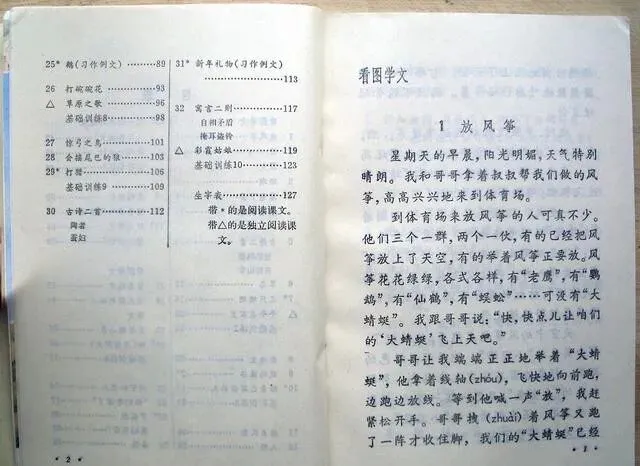 25* 鹅(习作例文)………89
26 打碗碗花…………93
△ 草原之歌…………96
基础训练8…………98
27 惊弓之鸟…………101
28 会摇尾巴的狼……103
29* 打猎………………106
基础训练9…………109
30 古诗二首…………112
陶者
蚕妇
31* 新年礼物(习作例文)
………………………113
32 寓言二则…………117
自相矛盾
掩耳盗铃
△ 彩霞姑娘…………119
基础训练10………123
生字表……………127
带*的是阅读课文。
带△的是独立阅读课
文。
· 2 ·
看图学文
1 放风筝
星期天的早晨，阳光明媚，天气特别
晴朗。我和哥哥拿着叔叔帮我们做的风
筝，高高兴兴地来到体育场。
到体育场来放风筝的人可真不少。
他们三个一群，两个一伙，有的已经把风
筝放上了天空，有的举着风筝正要放。风
筝花花绿绿，各式各样，有“老鹰”，有“鹦
鹉”，有“仙鹤”，有“蜈蚣”……可没有“大
蜻蜓”。我跟哥哥说：“快，快点儿让咱们
的‘大蜻蜓’飞上天吧。”
哥哥让我端端正正地举着“大蜻
蜓”，他拿着线轴(zhóu)，飞快地向前跑，
边跑边放线。等到他喊一声“放”，我赶
紧松开手。哥哥拽(zhuài)着风筝又跑
了一阵才收住脚，我们的“大蜻蜓”已经
· 1 ·